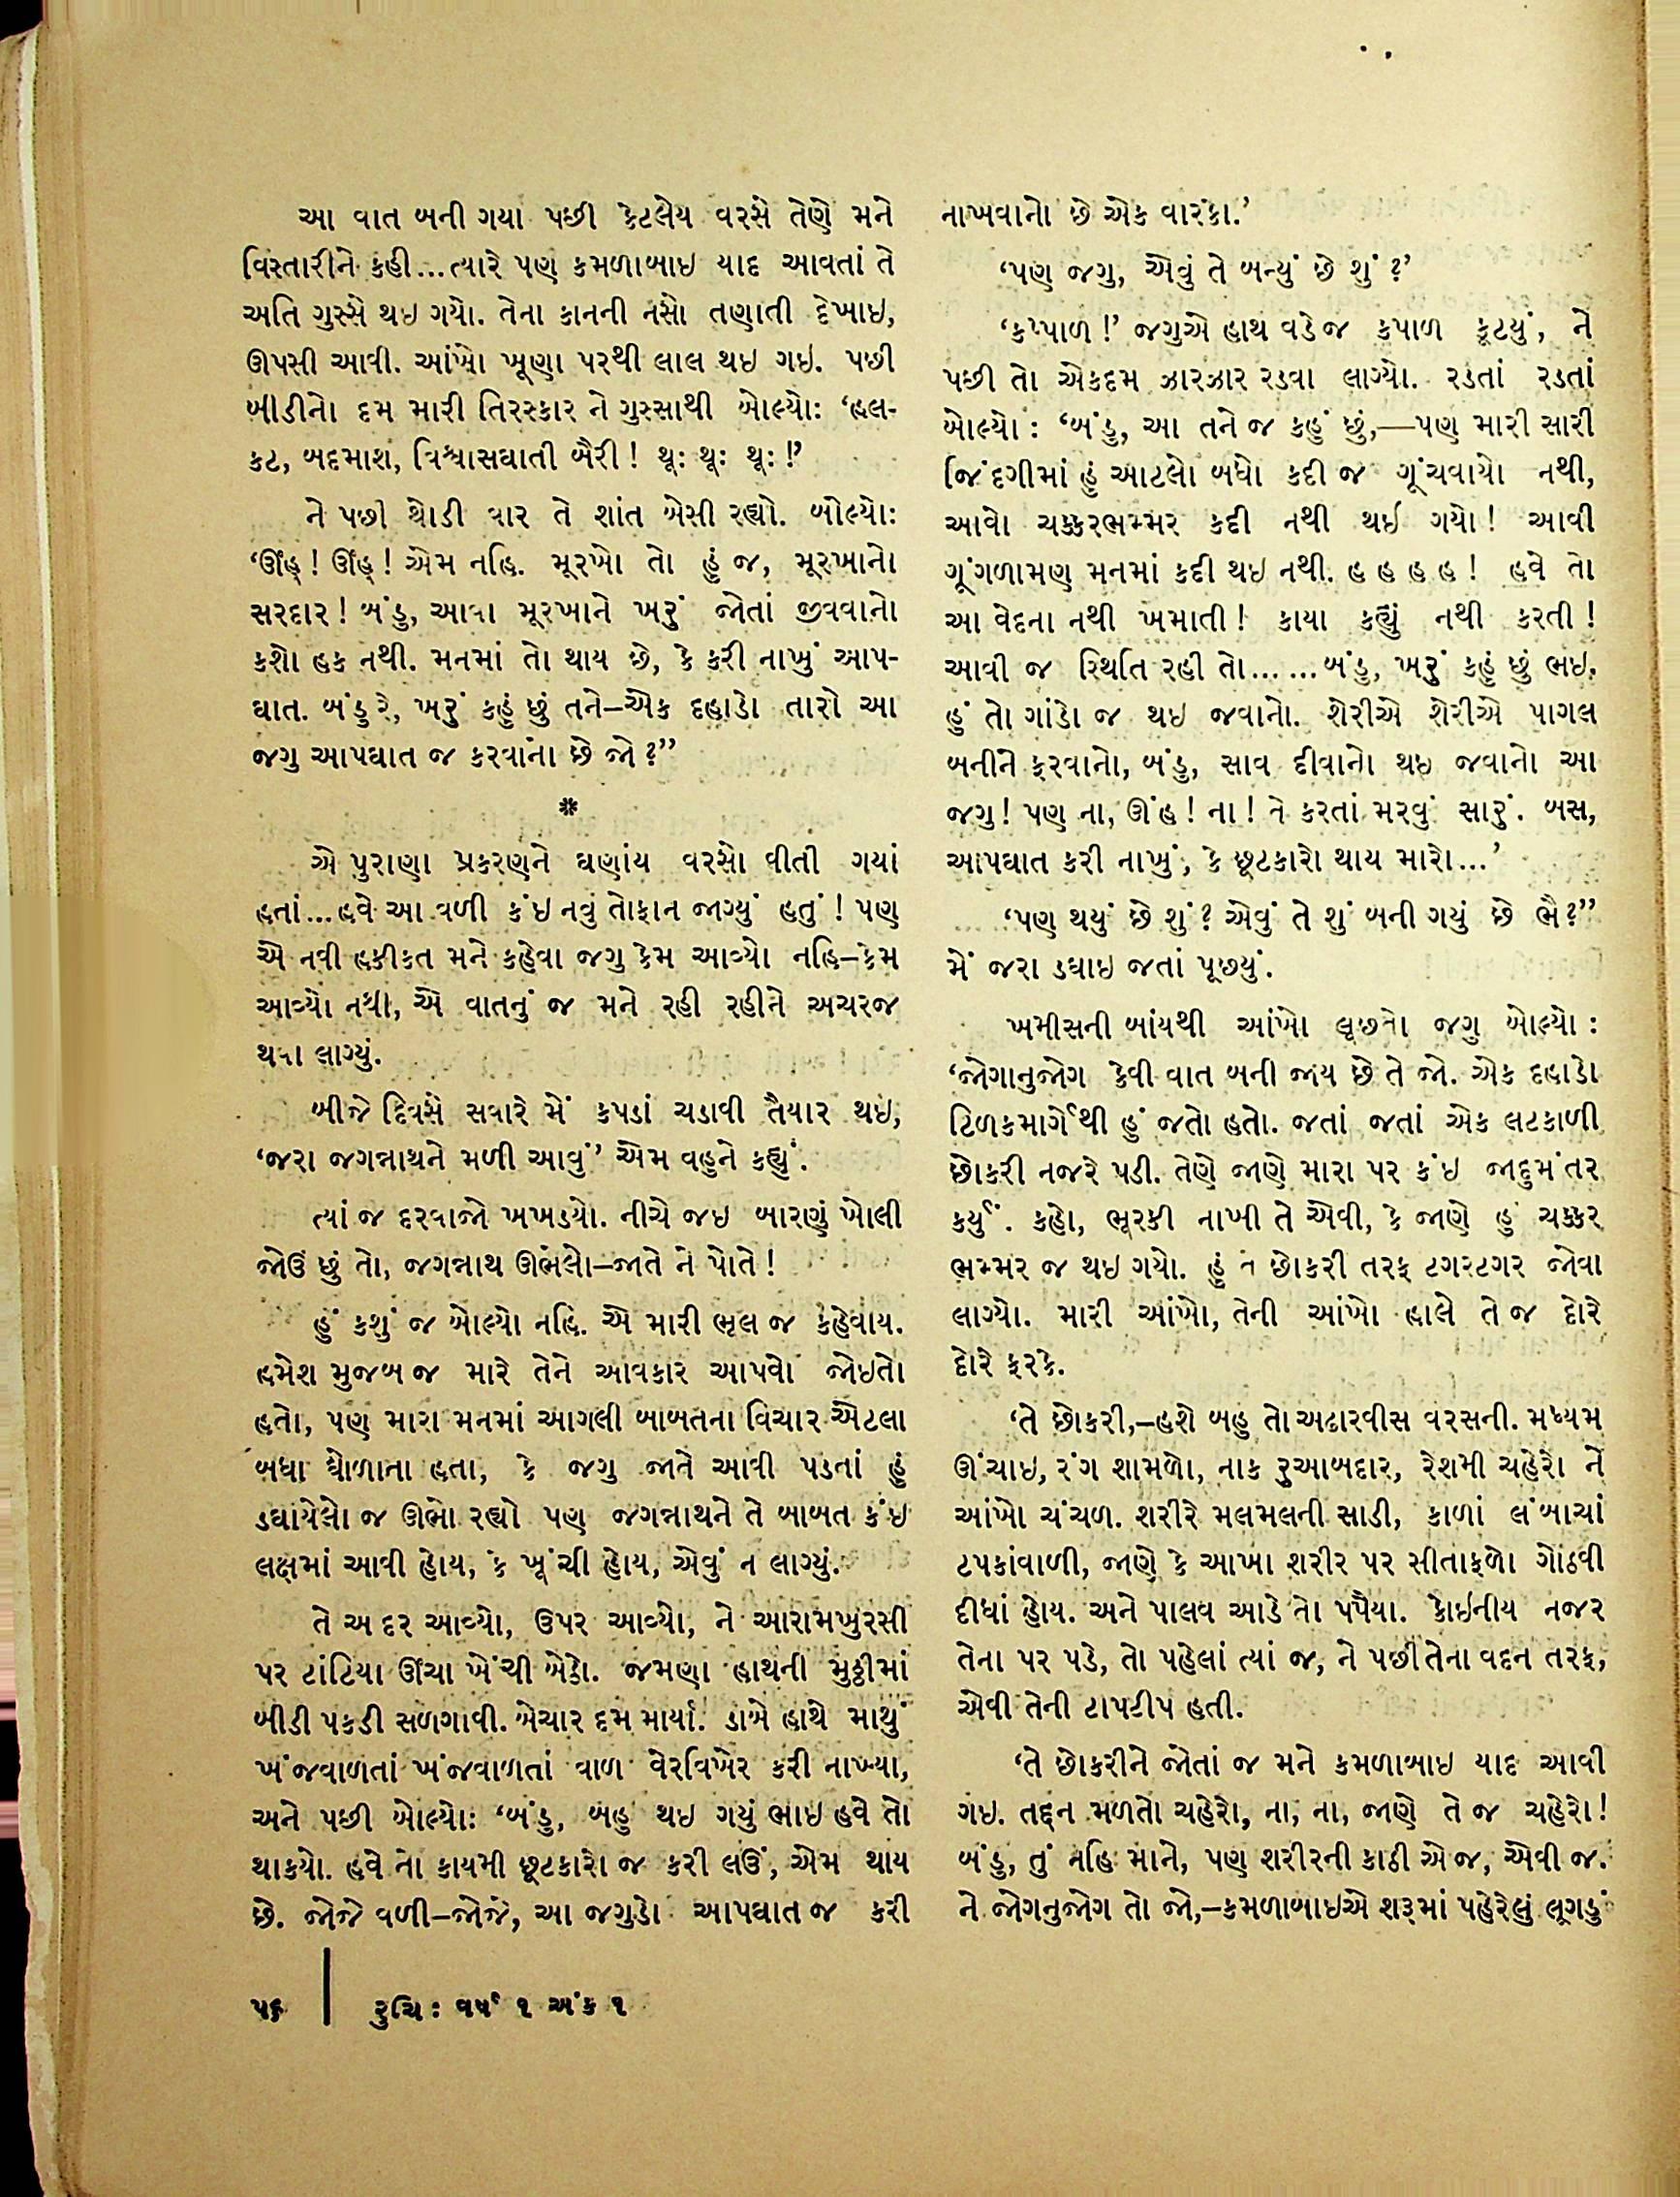 આ વાત બની ગયા પછી કેટલેય વરસે તેણે મને
વિસ્તારીને કહી...ત્યારે પણ કમળાબાઇ યાદ આવતાં તે
અતિ ગુસ્સે થઇ ગયો. તેના કાનની નસો તણાતી દેખાઇ,
ઊપસી આવી. આંખો ખૂણા પરથી લાલ થઇ ગઇ. પછી
બીડીનો દમ મારી તિરસ્કાર ને ગુસ્સાથી બોલ્યો: ‘હલ-
કટ, બદમાશ, વિશ્વાસઘાતી બૈરી! થૂ: થૂ: થૂ: !’
ને પછી થોડી વાર તે શાંત બેસી રહ્યો. બોલ્યો:
‘ઊંહ્! ઊંહ્! એમ નહિ. મૂરખો તો હું જ, મૂરખાનો
સરદાર! બંડુ, આવા મૂરખાને ખરું જોતાં જીવવાનો
કશો હક નથી. મનમાં તો થાય છે, કે કરી નાખું આપ-
ઘાત. બંડુ રે, ખરું કહું છું તને–એક દહાડો તારો આ
જગુ આપઘાત જ કરવાનો છે જો?”
*
એ પુરાણા પ્રકરણને ઘણાંય વરસો વીતી ગયાં
હતાં...હવે આ વળી કંઇ નવું તોફાન જાગ્યું હતું! પણ
એ નવી હકીકત મને કહેવા જગુ કેમ આવ્યો નહિ–કેમ
આવ્યો નથી, એ વાતનું જ મને રહી રહીને અચરજ
થવા લાગ્યું.
બીજે દિવસે સવારે મેં કપડાં ચડાવી તૈયાર થઇ,
‘જરા જગન્નાથને મળી આવું’ એમ વહુને કહ્યું.
ત્યાં જ દરવાજો ખખડયો. નીચે જઇ બારણું ખોલી
જોઉં છું તો, જગન્નાથ ઊભેલો–જાતે ને પોતે!
હું કશું જ બોલ્યો નહિ. એ મારી ભૂલ જ કહેવાય.
હમેશ મુજબ જ મારે તેને આવકાર આપવો જોઇતો
હતો, પણ મારા મનમાં આગલી બાબતના વિચાર એટલા
બધા ઘોળાતા હતા, કે જગુ જાતે આવી પડતાં હું
ડઘાયેલો જ ઊભો રહ્યો પણ જગન્નાથને તે બાબત કંઇ
લક્ષમાં આવી હોય, કે ખૂંચી હોય, એવું ન લાગ્યું.
તે અંદર આવ્યો, ઉપર આવ્યો, ને આરામખુરસી
પર ટાંટિયા ઊંચા ખેંચી બેઠો. જમણા હાથની મુઠ્ઠીમાં
બીડી પકડી સળગાવી. બેચાર દમ માર્યા. ડાબે હાથે માથું
ખંજવાળતાં ખંજવાળતાં વાળ વેરવિખેર કરી નાખ્યા,
અને પછી બોલ્યો: ‘બંડુ, બહુ થઇ ગયું ભાઇ હવે તો
થાકયો. હવે તો કાયમી છૂટકારો જ કરી લઉં, એમ થાય
છે. જોજે વળી–જોજે, આ જગુડો આપઘાત જ કરી
નાખવાનો છે એક વારકા.’
‘પણ જગુ, એવું તે બન્યું છે શું?’
‘કપ્પાળ!’ જગુએ હાથ વડે જ કપાળ કૂટયું, ને
પછી તો એકદમ ઝારઝાર રડવા લાગ્યો. રડતાં રડતાં
બોલ્યો: ‘બંડુ, આ તને જ કહું છું,—પણ મારી સારી
જિંદગીમાં હું આટલો બધો કદી જ ગૂંચવાયો નથી,
આવો ચક્કરભમ્મર કદી નથી થઈ ગયો! આવી
ગૂંગળામણ મનમાં કદી થઇ નથી. હ હ હ હ! હવે તો
આ વેદના નથી ખમાતી! કાયા કહ્યું નથી કરતી!
આવી જ સ્થિતિ રહી તો......બંડુ, ખરું કહું છું ભઇ,
હું તો ગાંડો જ થઇ જવાનો. શેરીએ શેરીએ પાગલ
બનીને ફરવાનો, બંડુ, સાવ દીવાનો થઇ જવાનો આ
જગુ! પણ ના, ઊંહ! ના! તે કરતાં મરવું સારું. બસ,
આપઘાત કરી નાખું, કે છૂટકારો થાય મારો...’
‘પણ થયું છે શું? એવું તે શું બની ગયું છે ભૈ?”
મેં જરા ડઘાઇ જતાં પૂછયું.
ખમીસની બાંયથી આંખો લૂછતો જગુ બોલ્યો:
‘જોગાનુજોગ કેવી વાત બની જાય છે તે જો. એક દહાડો
ટિળકમાર્ગેથી હું જતો હતો. જતાં જતાં એક લટકાળી
છોકરી નજરે પડી. તેણે જાણે મારા પર કંઇ જાદુમંતર
કર્યું. કહો, ભૂરકી નાખી તે એવી, કે જાણે હું ચક્કર
ભમ્મર જ થઇ ગયો. હું તે છોકરી તરફ ટગરટગર જોવા
લાગ્યો. મારી આંખો, તેની આંખો હાલે તે જ દોરે
દોરે ફરકે.
‘તે છોકરી,–હશે બહુ તો અઢારવીસ વરસની. મધ્યમ
ઊંચાઇ, રંગ શામળો, નાક રુઆબદાર, રેશમી ચહેરો ને
આંખો ચંચળ. શરીરે મલમલની સાડી, કાળાં લંબાચાં
ટપકાંવાળી, જાણે કે આખા શરીર પર સીતાફળો ગોઠવી
દીધાં હોય. અને પાલવ આડે તો પપૈયા. કોઇનીય નજર
તેના પર પડે, તો પહેલાં ત્યાં જ, ને પછી તેના વદન તરફ,
એવી તેની ટાપટીપ હતી.
‘તે છોકરીને જોતાં જ મને કમળાબાઇ યાદ આવી
ગઇ. તદ્દન મળતો ચહેરો, ના, ના, જાણે તે જ ચહેરો!
બંડુ, તું નહિ માને, પણ શરીરની કાઠી એ જ, એવી જ.
ને જોગનુજોગ તો જો,–કમળાબાઇએ શરૂમાં પહેરેલું લૂગડું
૫૬ | રુચિ: વર્ષ ૧ અંક ૧